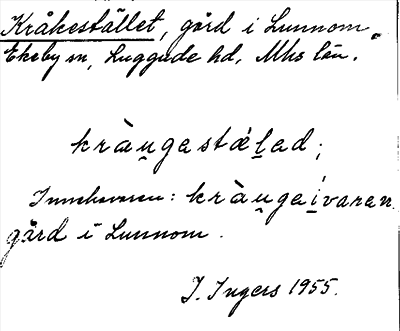 Kråkestället, gård i Lunnom,
Ekeby sn, Luggude hd, Mhs län.
kràu̯gastǽl̠ad;
Innehavaren: kràu̯gaívaren
gård i Lunnom.
I. Ingers 1955.